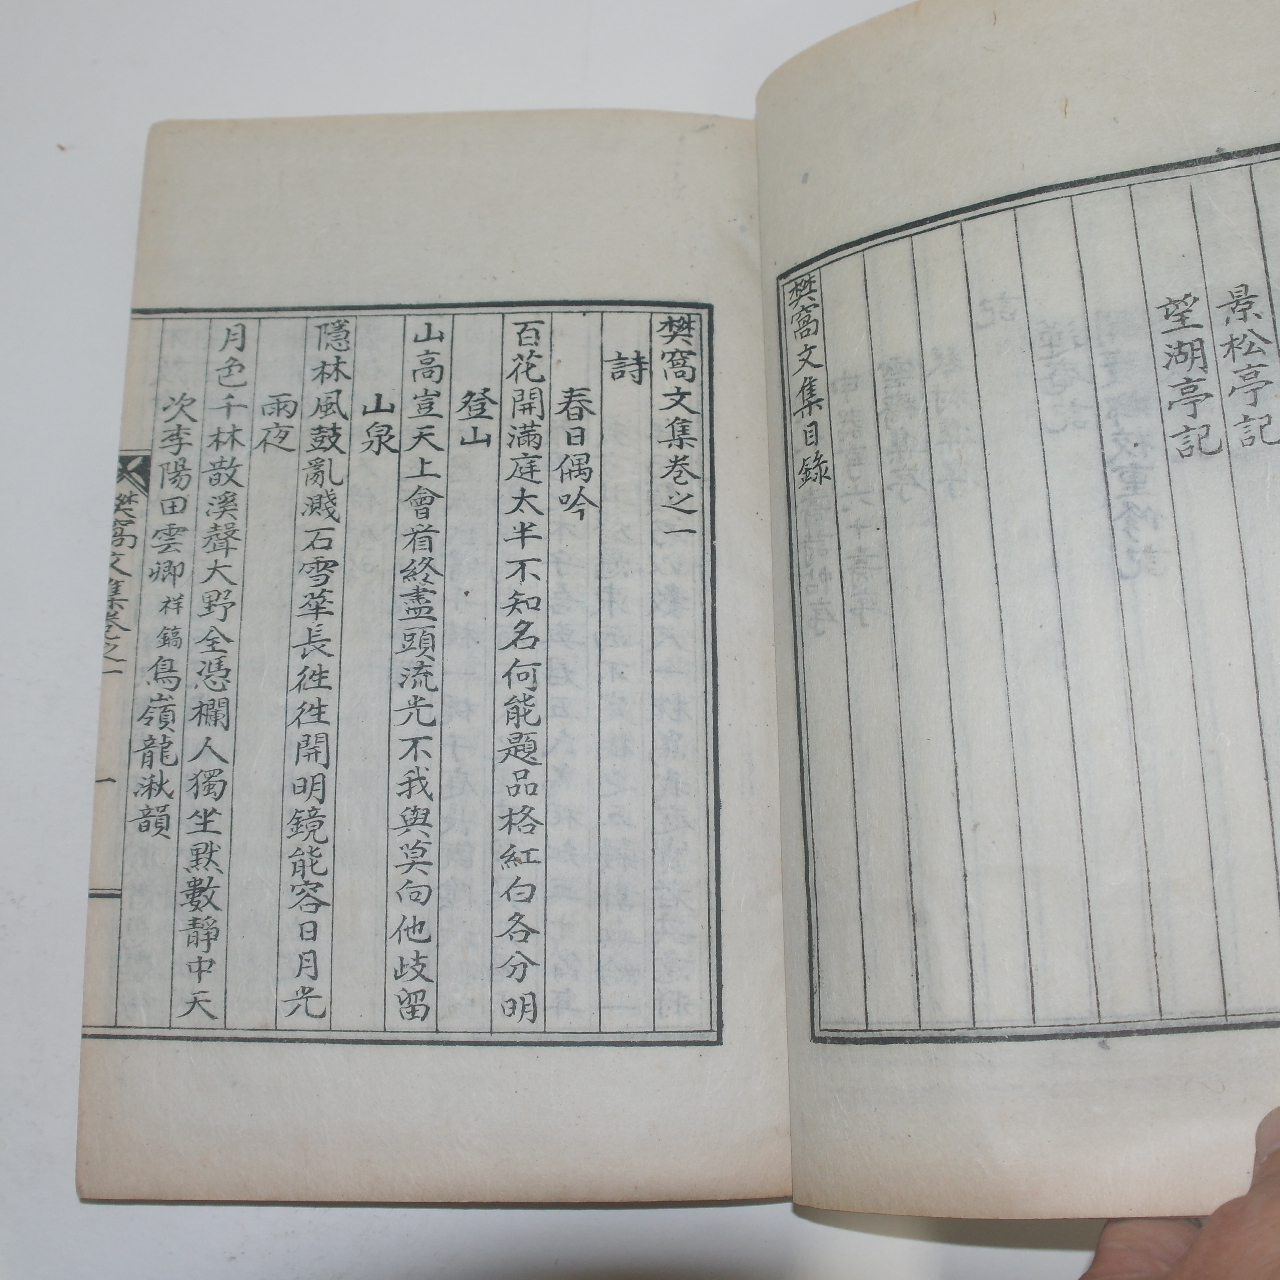 景松亭記
望湖亭記
樊窩文集目錄
樊窩文集卷之一
詩
春日偶吟
百花開滿庭太半不知名何能題品格紅白各分明
登山
山高豈天上會看終盡頭流光不我與莫向他歧留
山泉
隱林風鼓亂濺石雪華長徃徃開明鏡能容日月光
雨夜
月色千林散溪聲大野全憑欄人獨坐默數靜中天
次李陽田雲卿祥鎬鳥嶺龍湫韻
樊窩文集卷之一
一